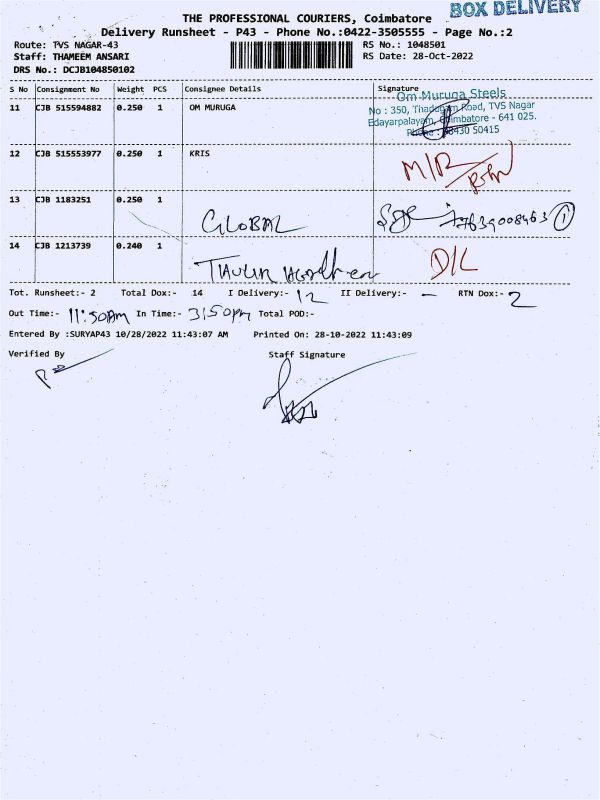 BOX DELIVERY
THE PROFESSIONAL COURIERS, Coimbatore
Delivery Runsheet - P43 - Phone No.:0422-3505555 - Page No.:2
Route: TVS NAGAR-43 RS No.: 1048501
Staff: THAMEEM ANSARI RS Date: 28-Oct-2022
DRS No.: DCJB104850102
S No Consignment No Weight PCS Consignee Details Signature
11 CJB 515594882 0.250 1 OM MURUGA
Om Muruga Steels
No : 350, Thadagam Road, TVS Nagar
Edayarpalayam, Coimbatore - 641 025.
Phone : 98430 50415
12 CJB 515553977 0.250 1 KRIS M/R
13 CJB 1183251 0.250 1 GLOBAL
14 CJB 1213739 0.240 1 D/L
Tot. Runsheet:- 2 Total Dox:- 14 I Delivery:- 12 II Delivery:- - RTN Dox:- 2
Out Time:- 11:50AM In Time:- 3:50pm Total POD:-
Entered By :SURYAP43 10/28/2022 11:43:07 AM Printed On: 28-10-2022 11:43:09
Verified By Staff Signature